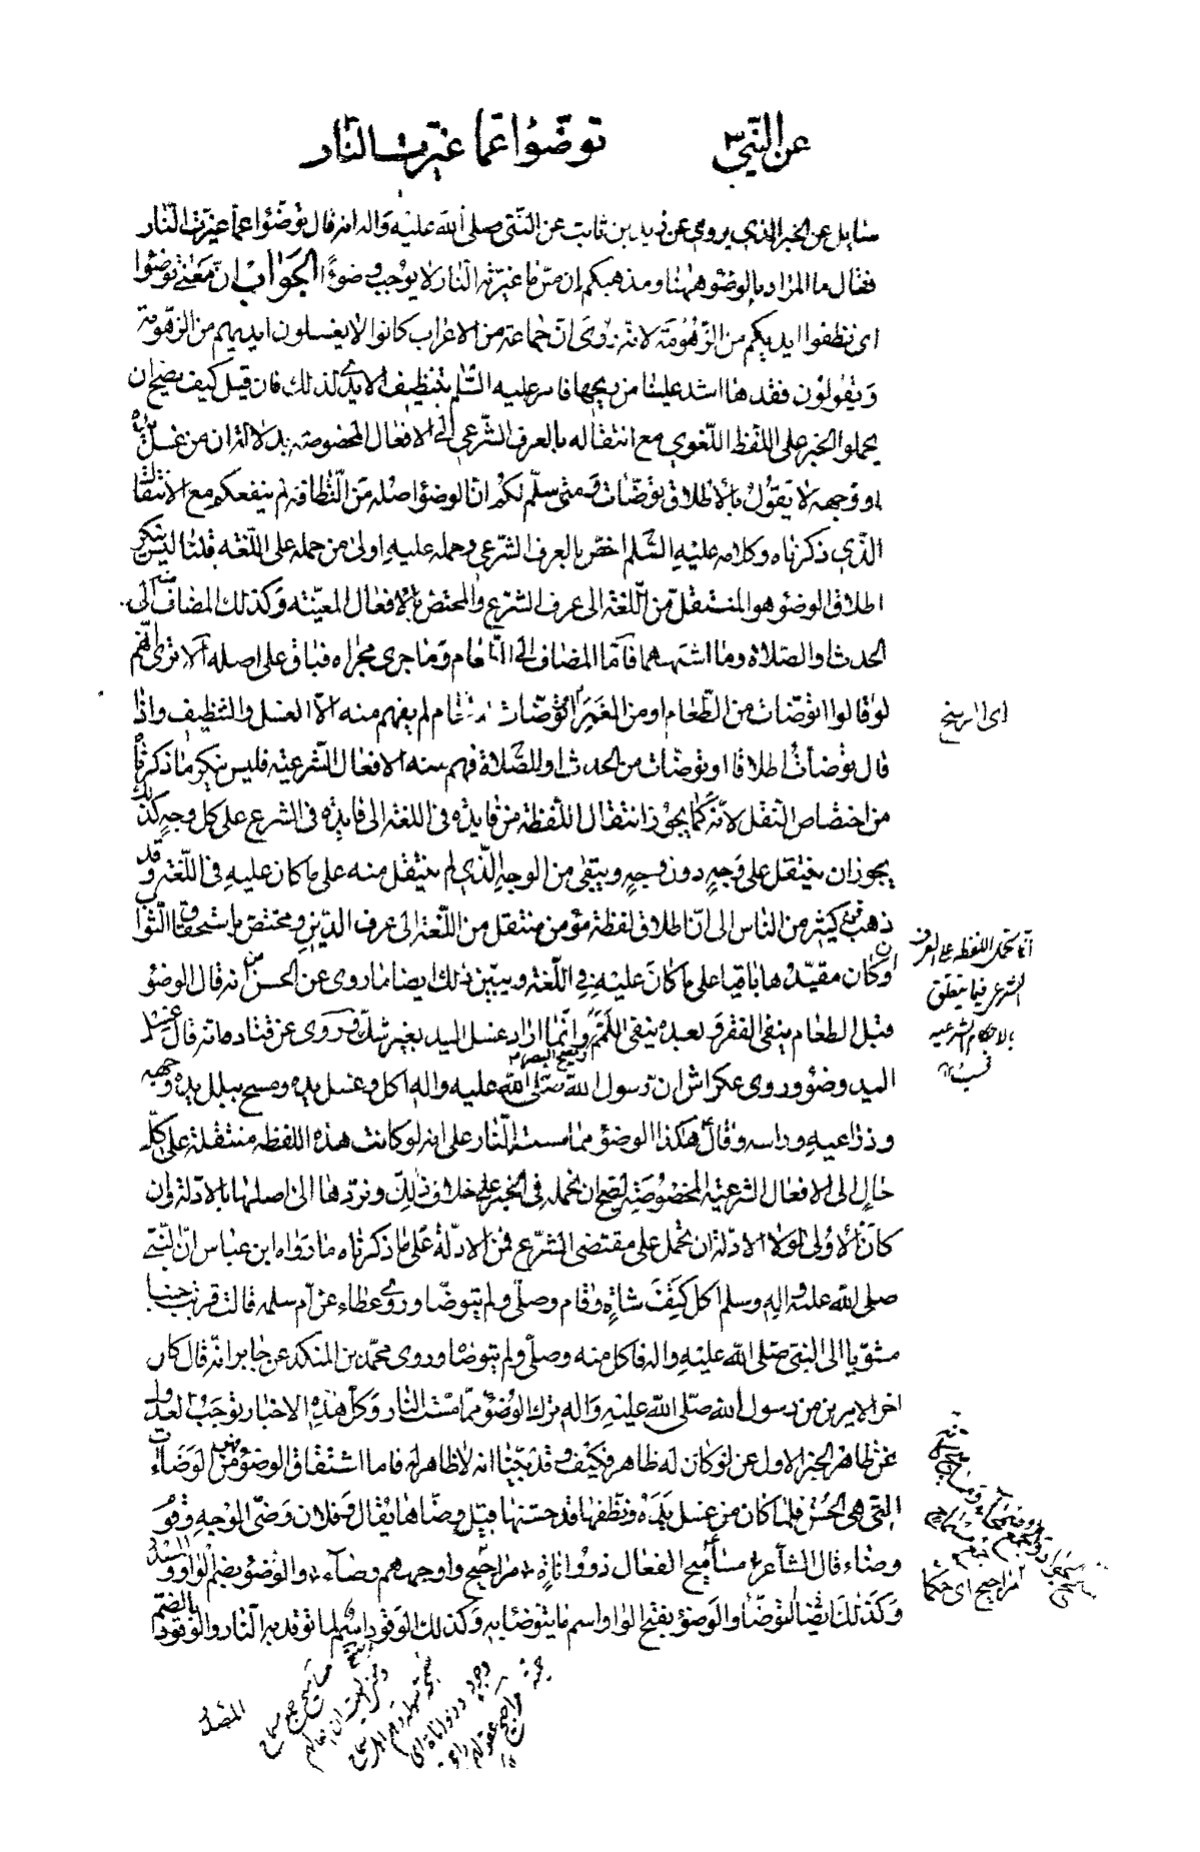 عن النبي ص توضّؤا عمّا غيّرت النار
سايل عن الخبر الذي يروى عن زيد بن ثابت عن النبي صلى الله عليه واله انه قال توضّؤا عمّا غيّرت النّار
فقال ما المراد بالوضؤ ههنا ومذهبكم ان مسّ ما غيّرته النّار لا يوجب وضوءًا الجواب انّ معنى توضؤا
اى نظفوا ايديكم من الزّهُومة لانه رُوىَ انّ جماعة من الاعراب كانوا لا يغسلون ايديهم من الزّهومة
وَيقولون فقدها اشد علينا من ريحها فامر عليه السّلم بتنظيف الايدى لذلك فان قيل كيف يصحّ ان
يحملوا الخبر على اللّفظ اللّغوي مع انتقاله بالعرف الشّرعي الى الافعال المخصوصة بدلالة ان من غسل يده
او وجهه لا يقول بالاطلاق توضّأت ومتى سلّم لكم انّ الوضؤ اصله من النّظافة لم ينفعكم مع الانتقال
الذّي ذكرناه وكلامه عليْهِ السّلم اخصّ بالعرف الشّرعي وحمله عليهِ اولى من حمله على اللّغة قلنا ليس ينكر
اطلاق الوضؤ هو المنتقل من اللّغة الى عرف الشرع والمختصّ بالافعال المعيّنة وَكذلك المضاف منه الى
الحدث او الصّلاة وما اشبههما فامّا المضاف الى الطّعام وَما جرى مجراه فباق على اصله الا ترى انّهم
لو قالوا توضّأت من الطّعام او من الغَمَر او توضّأت للطعام لم يفهم منه الاّ الغسل والتنظيف واذا
قال توضأت اطلاقا او توضّأت من الحدث او للصّلاة فهم منه الافعال الشّرعيّة فليس ينكر ما ذكرناه
من اختصاص النّقل لانّه كما يجوز انتقال اللّفظة من فايدة فى اللغة الى فايدة فى الشرع على كل وجهٍ كذلك
يجوز ان ينتقل على وَجهٍ دون وجهٍ ويبقى من الوجهِ الّذي لم ينتقل منه على ما كان عليهِ فى اللّغة وقد
ذهب كثير من الناس الى انّ اطلاق لفظة مؤمن منتقل من اللّغة الى عرف الدّين ومختصّ باستحقاق الثّواب
وان كان مقيّدها باقيا على ما كانَ عليهِ في اللّغة ويبيّن ذلك ايضا ما روى عن الحسن انه قال الوضؤ
قبل الطعام ينفى الفقر وبعده ينفى اللّمَم وانّما اراد غسل اليد بغير شكّ وروى عن قتادة انه قال غسل
اليد وضؤ وروى عكراش ان رسول اللّه صلّى اللّه عليه واله اكل وغسل يده ومسح ببلل يده وجهه
وذراعيهِ وراسه وقال هكذا الوضؤ ممّا مست النّار على انه لو كانت هذه اللفظة منتقلة على كلّ
حالٍ الى الافعال الشرعيّة المخصُوصَة لصحّ ان نحمله فى الخبر على خلاف ذلك ونردّها الى اصلها بالادلة وان
كان الاولى لولا الادلّة ان تحمل على مقتضى الشّرع فمن الادلّة عَلى ما ذكرناه ما رواه ابن عباس انّ النّبي
صلى اللّه عليه واله وسلم اكل كَتِفَ شاةٍ وقام وصلّى ولم يتوضّا وروى عطاء عن امّ سلمة قالت قربت جنبا
مشويّا الى النبي صلّى اللّه عليْهِ واله فاكل منه وصلّى ولم يتوضّا وروى محمّد بن المنكدر عن جابر انّه قال كان
اخر الامرين من رسول اللّه صلّى اللّه عليْهِ وَاله ترك الوُضؤ ممّا مسّت النّار وَكلّ هٰذِهِ الاخبار توجَبُ العدول
عن ظاهر الخبر الاول عن لو كان له ظاهر فكيف وقد بيّنّا انه لا ظاهر له فاما اشتقاق الوضؤ فهو من الوَضاءَة
التي هى الحُسْن فلمّا كان من غسل يَدَهُ ونظّفها قد حسّنها قيل وضّاها يُقال فلان وَضِىّ الوَجهِ وقوم
وضاء قال الشاعر مساميح الفعال ذووا اناةٍ مراجيح واوجههم وضآء والوُضؤ بضم الواو المصدر
وَكذلك ايضًا التوضّأ والوَضؤ بفتح الواو اسم ما يتوضّا به وَكذلك الوَقود اسْم لما توقد به النّار والوُقود بالضّم
المصدر
اى الريح
انا نحمل اللفظ على العرف
الشرعي فيما يتعلق
بالاحكام الشرعية
مراجيح اى حكما